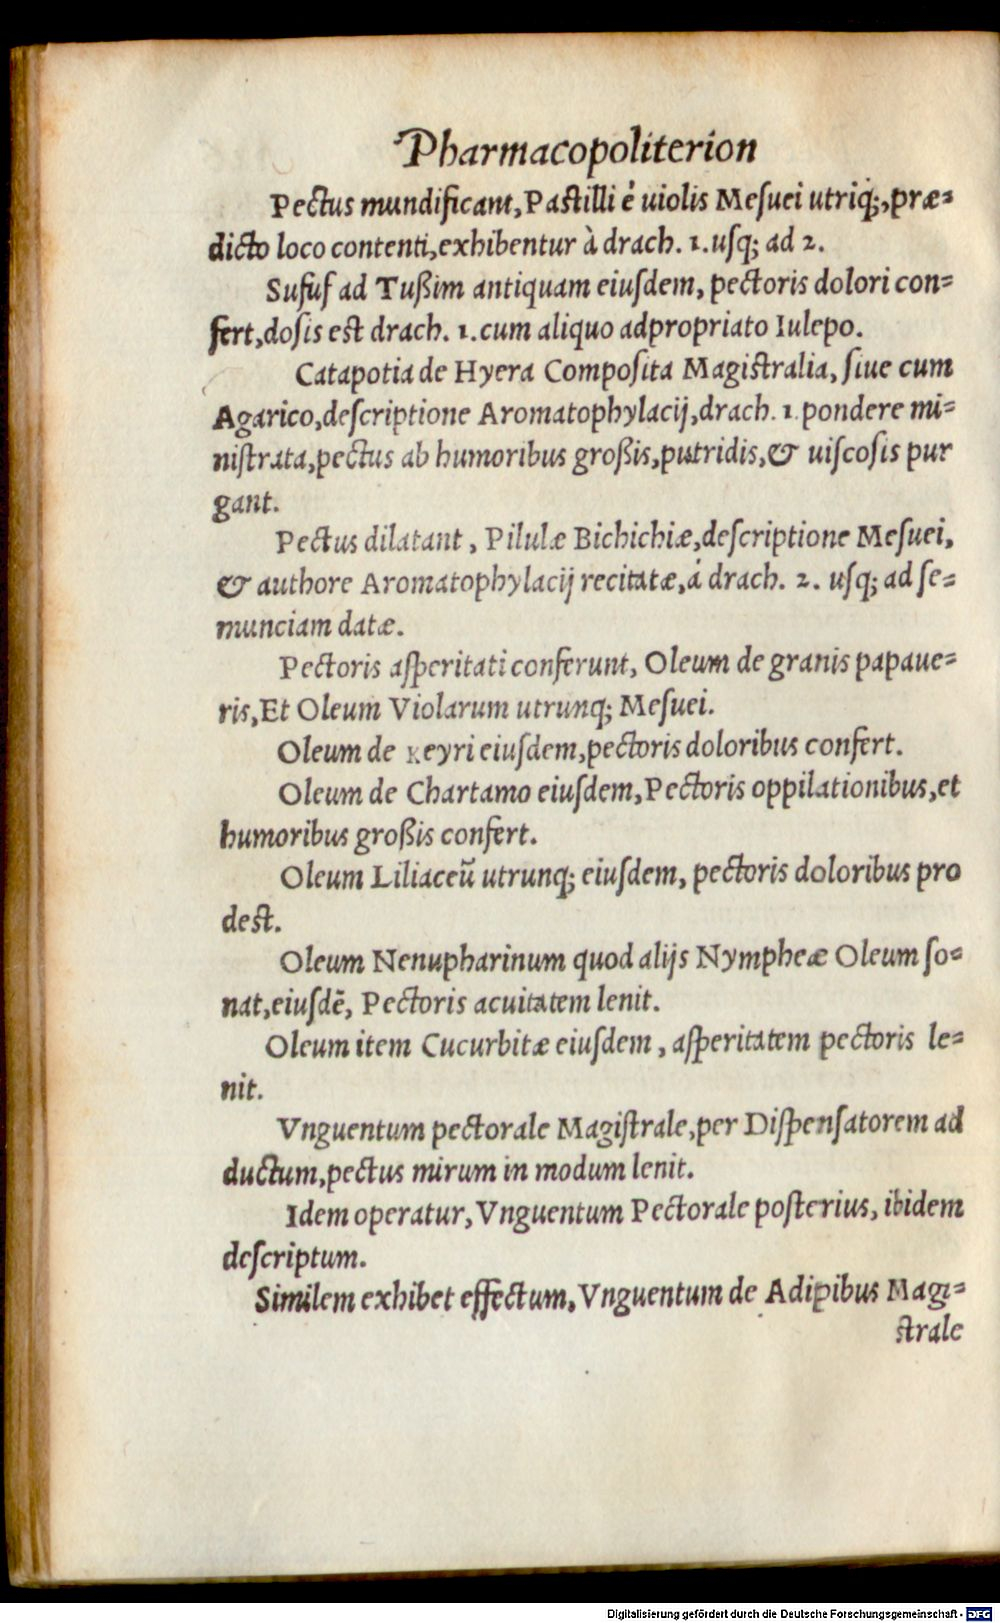 Pharmacopoliterion
Pectus mundificant, Pastilli è uiolis Mesuei utriq;, præ=
dicto loco contenti, exhibentur à drach. 1. usq; ad 2.
Sufuf ad Tußim antiquam eiusdem, pectoris dolori con=
fert, dosis est drach. 1. cum aliquo adpropriato Iulepo.
Catapotia de Hyera Composita Magistralia, siue cum
Agarico, descriptione Aromatophylacij, drach. 1. pondere mi=
nistrata, pectus ab humoribus großis, putridis, & uiscosis pur
gant.
Pectus dilatant, Pilulæ Bichichiæ, descriptione Mesuei,
& authore Aromatophylacij recitatæ, á drach. 2. usq; ad se=
munciam datæ.
Pectoris asperitati conferunt, Oleum de granis papaue=
ris, Et Oleum Violarum utrunq; Mesuei.
Oleum de Keyri eiusdem, pectoris doloribus confert.
Oleum de Chartamo eiusdem, Pectoris oppilationibus, et
humoribus großis confert.
Oleum Liliaceũ utrunq; eiusdem, pectoris doloribus pro
dest.
Oleum Nenupharinum quod alijs Nympheæ Oleum so=
nat, eiusdẽ, Pectoris acuitatem lenit.
Oleum item Cucurbitæ eiusdem, asperitatem pectoris le=
nit.
Vnguentum pectorale Magistrale, per Dispensatorem ad
ductum, pectus mirum in modum lenit.
Idem operatur, Vnguentum Pectorale posterius, ibidem
descriptum.
Similem exhibet effectum, Vnguentum de Adipibus Magi=
strale
Digitalisierung gefördert durch die Deutsche Forschungsgemeinschaft - DFG